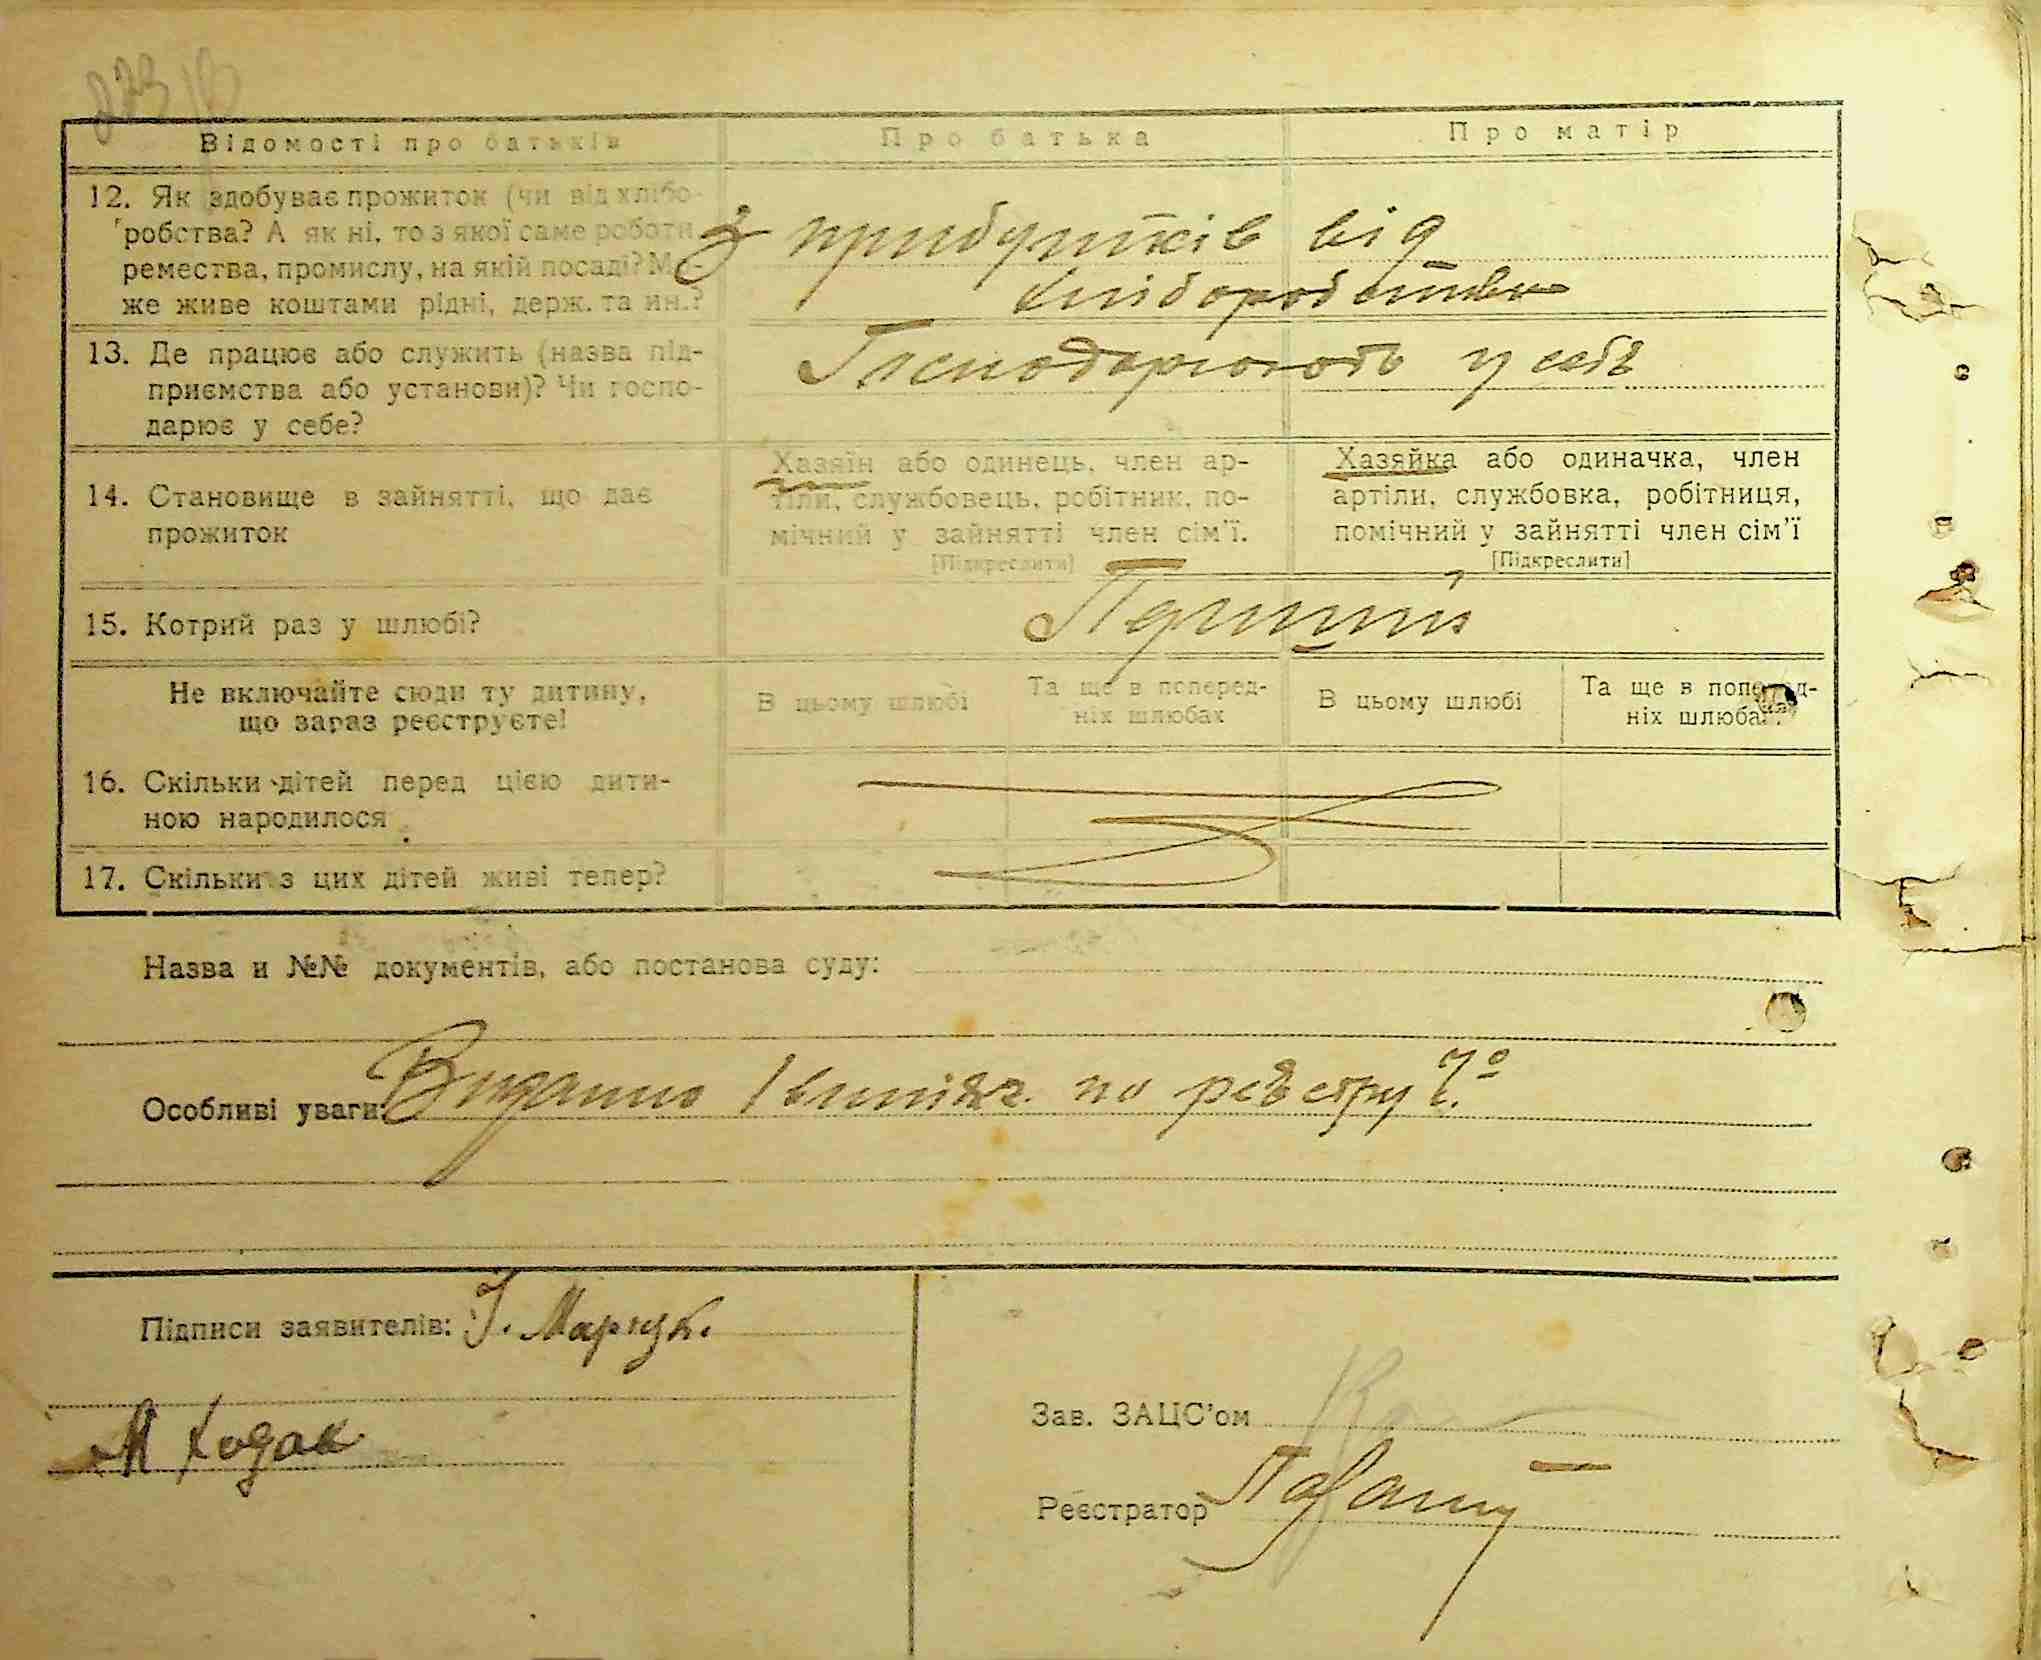 Відомості про батьків
Про батька
Про матір
12. Як здобуває прожиток (чи від хлібо-
робства? А як ні, то з якої саме роботи,
ремества, промислу, на якій посаді? Мо-
же живе коштами рідні, держ. та ин.?
З прибутків від
хліборобства
13. Де працює або служить (назва під-
приємства або установи)? Чи госпо-
дарює у себе?
Господарюють у себе
14. Становище в зайнятті, що дає
прожиток
Хазяїн або одинець, член ар-
тіли, службовець, робітник, по-
мічний у зайнятті член сім'ї.
[Підкреслити]
Хазяйка або одиначка, член
артіли, службовка, робітниця,
помічний у зайнятті член сім'ї
[Підкреслити]
15. Котрий раз у шлюбі?
Перший
Не включайте сюди ту дитину,
що зараз реєструєте!
В цьому шлюбі
Та ще в поперед-
ніх шлюбах
В цьому шлюбі
Та ще в поперед-
ніх шлюбах.
16. Скільки дітей перед цією дити-
ною народилося
17. Скільки з цих дітей живі тепер?
Назва и №№ документів, або постанова суду:
Особливі уваги: Видано по реєстру
Підписи заявителів: І. Марчук.
М Ходак
Зав. ЗАЦС'ом
Реєстратор